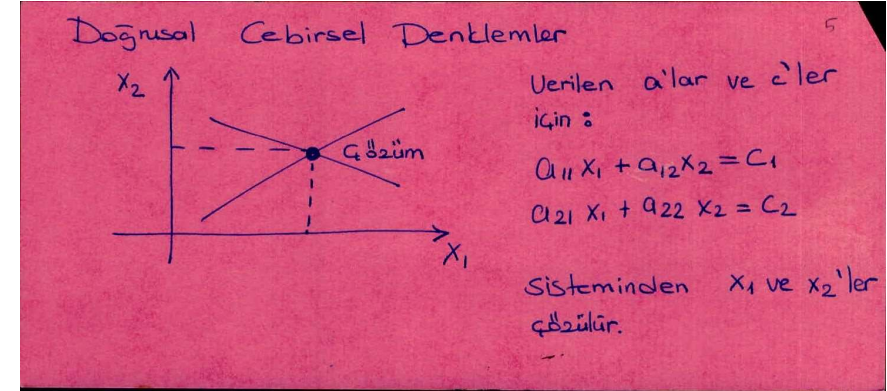 Doğrusal Cebirsel Denklemler
5
X₂
Çözüm
X₁
Verilen a'lar ve c'ler
için :
a₁₁ X₁ + a₁₂ X₂ = C₁
a₂₁ X₁ + a₂₂ X₂ = C₂
Sisteminden X₁ ve X₂'ler
çözülür.